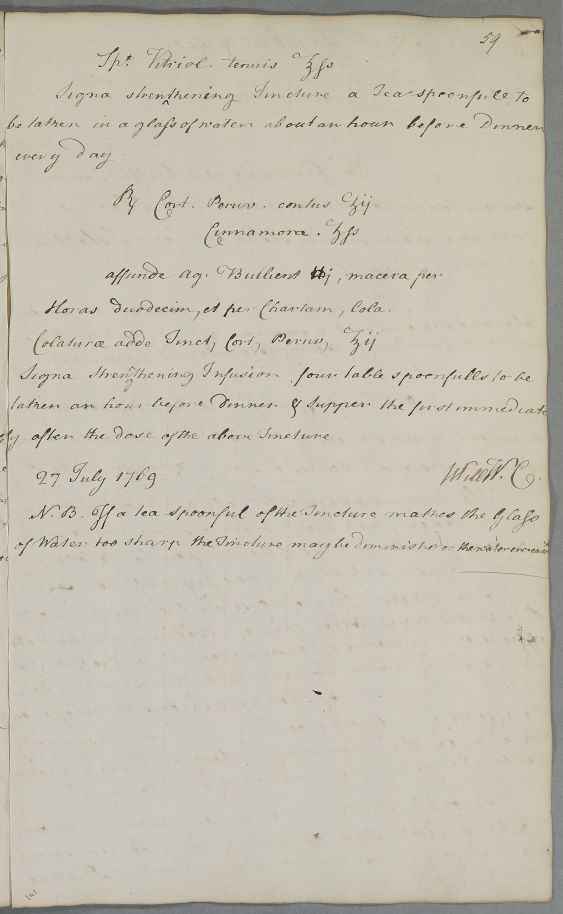 59
Spt. Vitriol. tenuis ℥ss
Signa strengthening Tincture a Tea spoonfull to
be taken in a glass of water about an hour before Dinner
every Day
℞ Cort. Peruv. contus ℥ij
Cinnamom. ℥ss
affunde aq. Bullient ℔j, macera per
Horas duodecim, et per Chartam, Cola.
Colaturæ adde Tinct, Cort, Peruv, ℥ij
Signa Strengthening Infusion, four table spoonfulls to be
taken an hour before dinner & Supper the first immediate
ly after the dose of the above Tincture
27 July 1769 Will W. C.
N. B. If a tea spoonful of the Tincture makes the Glass
of Water too sharp the Tincture may be diminished or the water encreasd
161